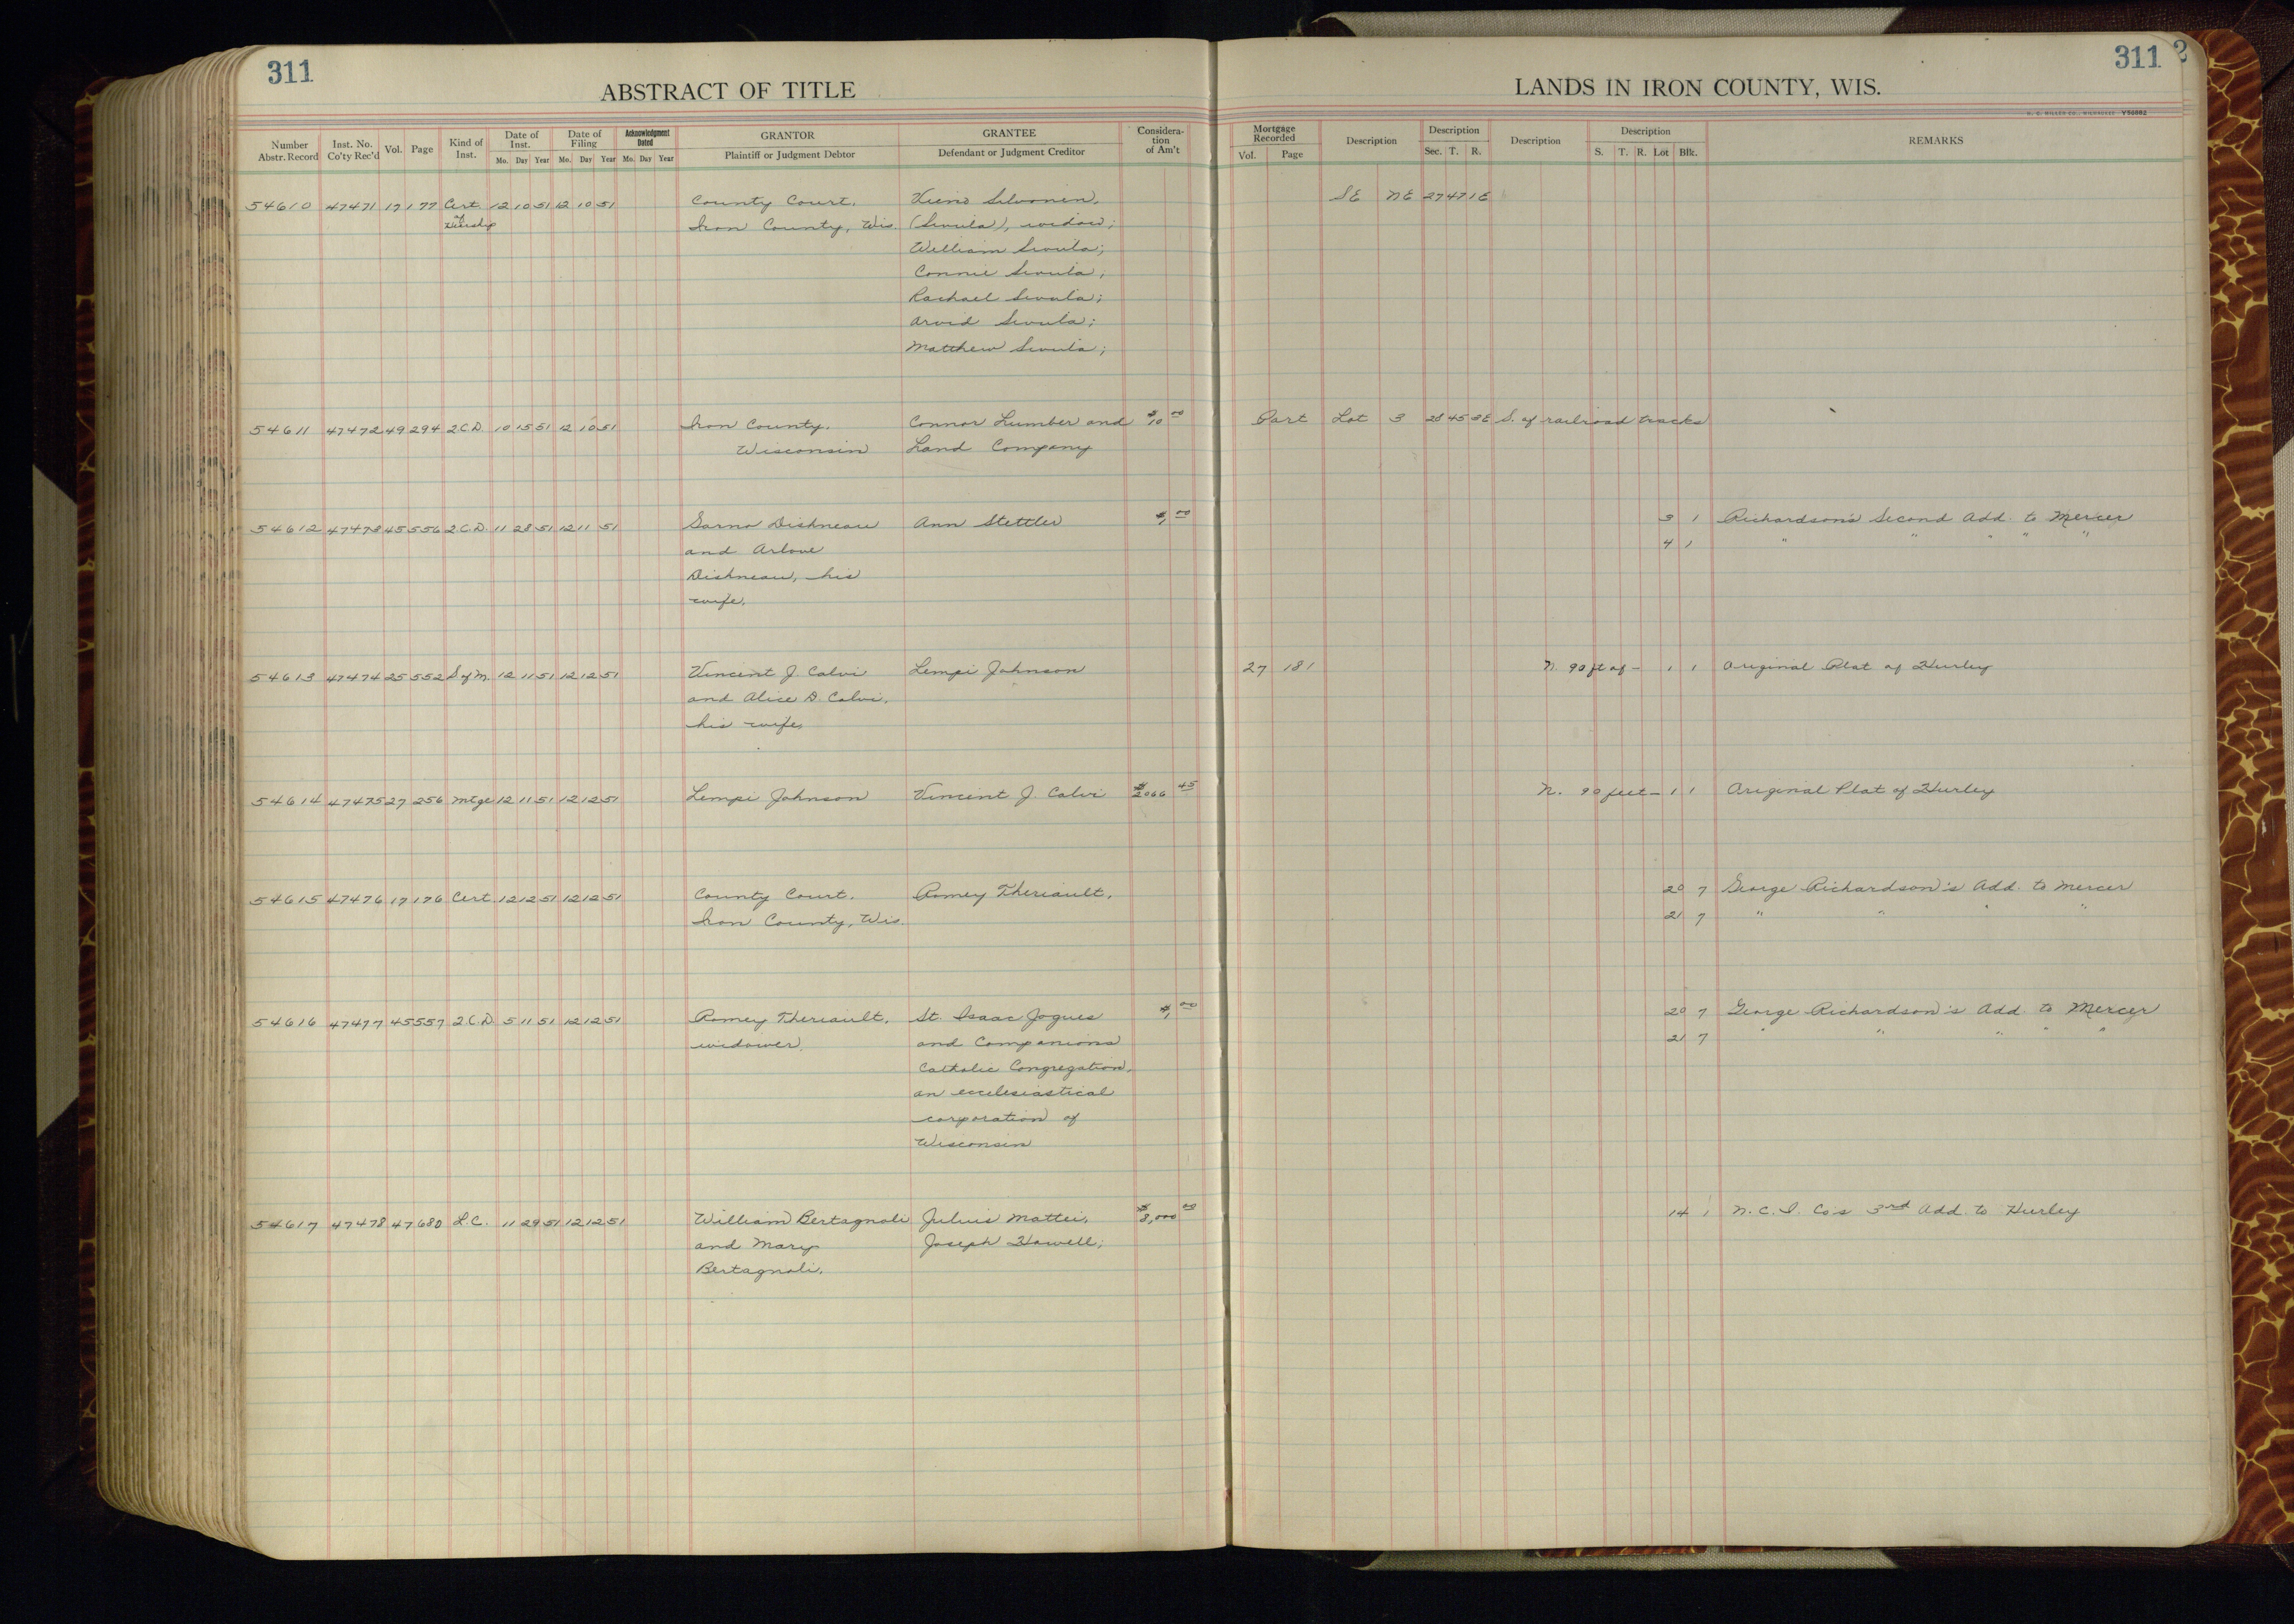 311
ABSTRACT OF TITLE
LANDS IN IRON COUNTY, WIS.
311
Number Abstr. Record Inst. No. Co'ty Rec'd Vol. Page Kind of Inst. Date of Inst. Mo. Day Year Date of Filing Mo. Day Year Acknowledgment Dated Mo. Day Year GRANTOR Plaintiff or Judgment Debtor GRANTEE Defendant or Judgment Creditor Considera- tion of Am't
Mortgage Recorded Vol. Page Description Description Sec. T. R. Description Description S. T. R. Lot Blk. REMARKS
54610 47471 17 177 Cert. 12 10 51 12 10 51 County Court, SE NE 27 47 1E
of Heirship Iron County, Wis. (Sivula), widow;
William Sivula;
Connie Sivula;
Rachael Sivula;
Arvid Sivula;
Matthew Sivula;
54611 47472 49 294 2C.D. 10 15 51 12 10 51 Iron County, Connor Lumber and $10 00 Part Lot 3 28 45 3E S. of railroad tracks
Wisconsin Land Company
54612 47473 45 556 2C.D. 11 28 51 12 11 51 Dishneau Ann Stettler $1 00 3 1 Richardson's Second Add. to Mercer
and Arlove 4 1 " " " " "
Dishneau, his
wife.
54613 47474 25 552 S of M. 12 11 51 12 12 51 Vincent J. Calvi Lempi Johnson 27 181 N. 90 ft of - 1 1 Original Plat of Hurley
and Alice D. Calvi,
his wife,
54614 47475 27 256 Mtge 12 11 51 12 12 51 Lempi Johnson Vincent J. Calvi $2066 45 N. 90 feet - 1 1 Original Plat of Hurley
54615 47476 17 176 Cert. 12 12 51 12 12 51 County Court, Romey Theriault, 20 7 George Richardson's Add. to Mercer
Iron County, Wis. 21 7 " " " "
54616 47477 45 557 2C.D. 5 11 51 12 12 51 Romey Theriault, St. Isaac Jogues $1 00 20 7 George Richardson's Add. to Mercer
widower, and Companions 21 7 " " " " "
Catholic Congregation,
an ecclesiastical
corporation of
Wisconsin
54617 47478 47 680 L.C. 11 29 51 12 12 51 William Bertagnoli Julius Mattei, $8,000 00 14 1 N. C. I. Co's 3rd Add. to Hurley
and Mary Joseph Howell;
Bertagnoli,